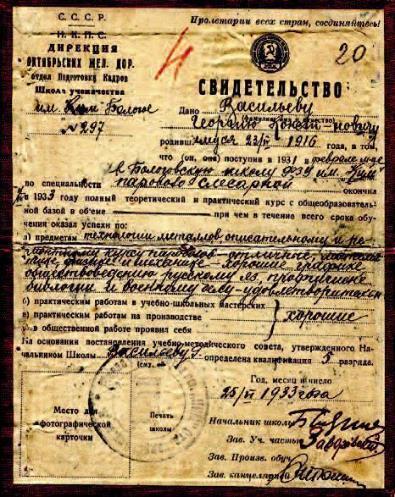 С. С. С. Р.
Пролетарии всех стран, соединяйтесь!
Н. К. П. С.
ДИРЕКЦИЯ
ОКТЯБРЬСКИХ ЖЕЛ. ДОР.
отдел Подготовки Кадров
Школа ученичества
им. Ким Бологое
№ 297
4
20
СВИДЕТЕЛЬСТВО
Дано Васильеву
Георгию
родивш 23/II 1916 года, в том,
что (он, она) поступив в 1931 феврале м-це
в Бологовскую школу ФЗУ им. "Ким"
по специальности паровозо слесарной окончил
в 1933 году полный теоретический и практический курс с общеобразователь-
ной базой в об'еме при чем в течение всего срока обу-
чения оказал успехи по:
а) предметам технологии металлов, описательному и ре-
монтному курсу паровозов - отличные,
физике и механике - хорошие, графике
обществоведению русскому яз.
биологии и военному делу - удовлетворительн
б) практическим работам в учебно-школьных мастерских
в) практическим работам на производстве
хорошие
г) в общественной работе проявил себя
На основании постановления учебно-методического совета, утвержденного На-
чальником Школы Васильеву Г. определена квалификация 5 разряда.
Год, месяц и число
25/II 1933 года
Место для
фотографической
карточки
Печать
школы
Начальник школы
Зав. Уч. частью
Зав. Произв. обуч.
Зав. канцелярией